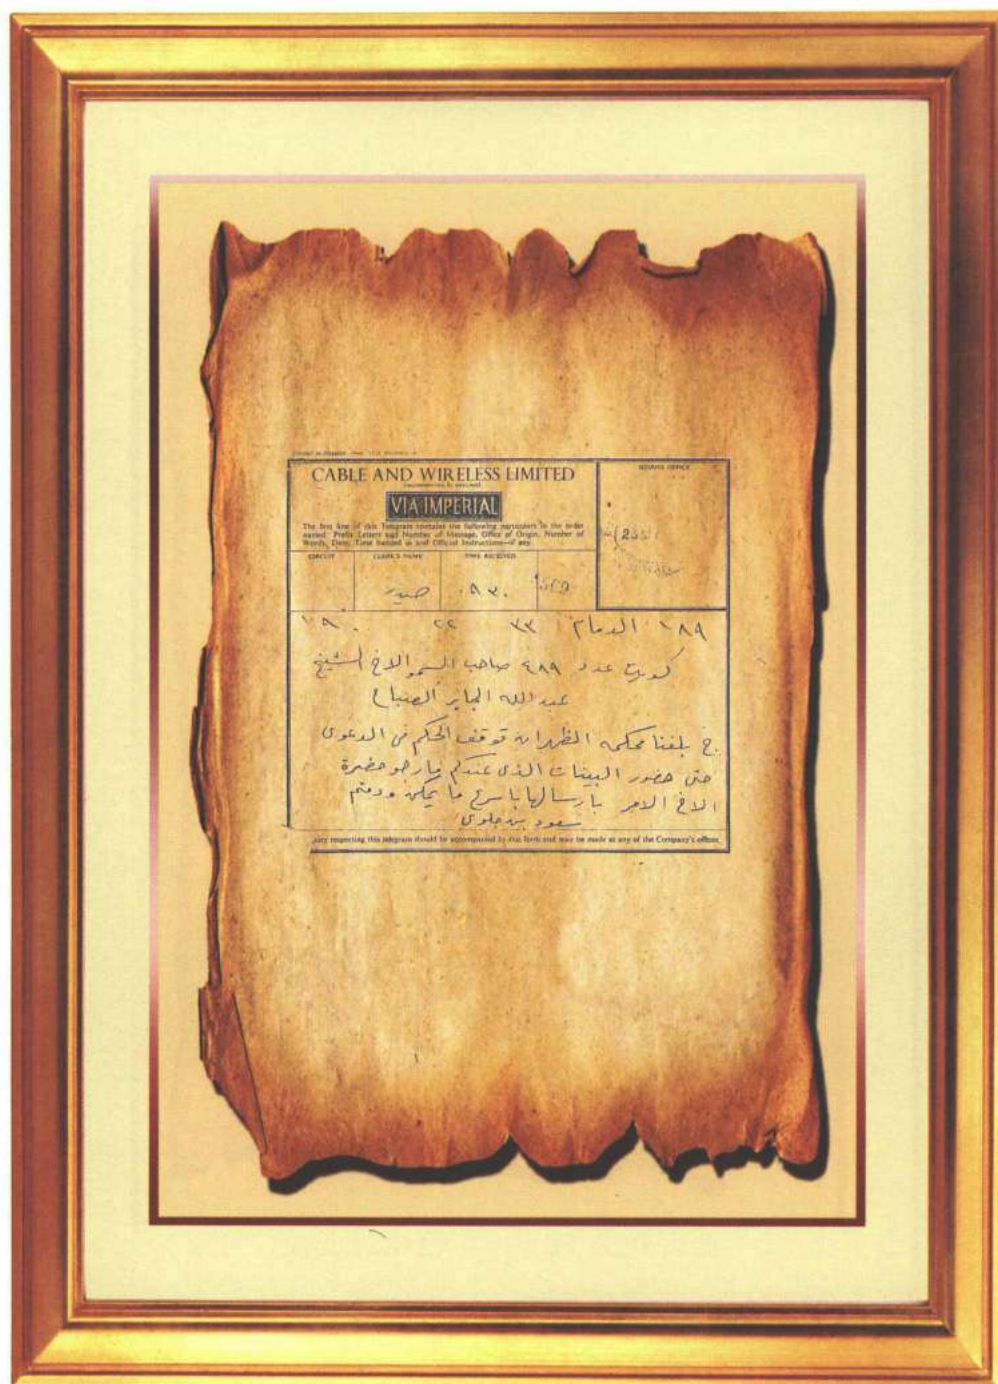 CABLE AND WIRELESS LIMITED
VIA IMPERIAL
The first line of this Telegram contains the following particulars in the order
named: Prefix Letters and Number of Message, Office of Origin, Number of
Words, Date, Time handed in and Official Instructions—if any
ISSUING OFFICE
CIRCUIT CLERK'S NAME TIME RECEIVED
٠٨٣٠
١٨٩ الدمام ٣٣ ٢٢
كويت عدد ٤٨٩ صاحب السمو الاخ الشيخ
عبد الله الجابر الصباح
ج بلغنا محكمه الظهران توقف الحكم في الدعوى
حتى حضور البينات الذي عندكم فارجو حضرة
الاخ الامر بارسالها باسرع ما يمكن ودمتم
سعود بن جلوي
respecting this telegram should be accompanied by this form and may be made at any of the Company's offices.